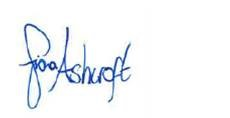 Fiona Ashcroft